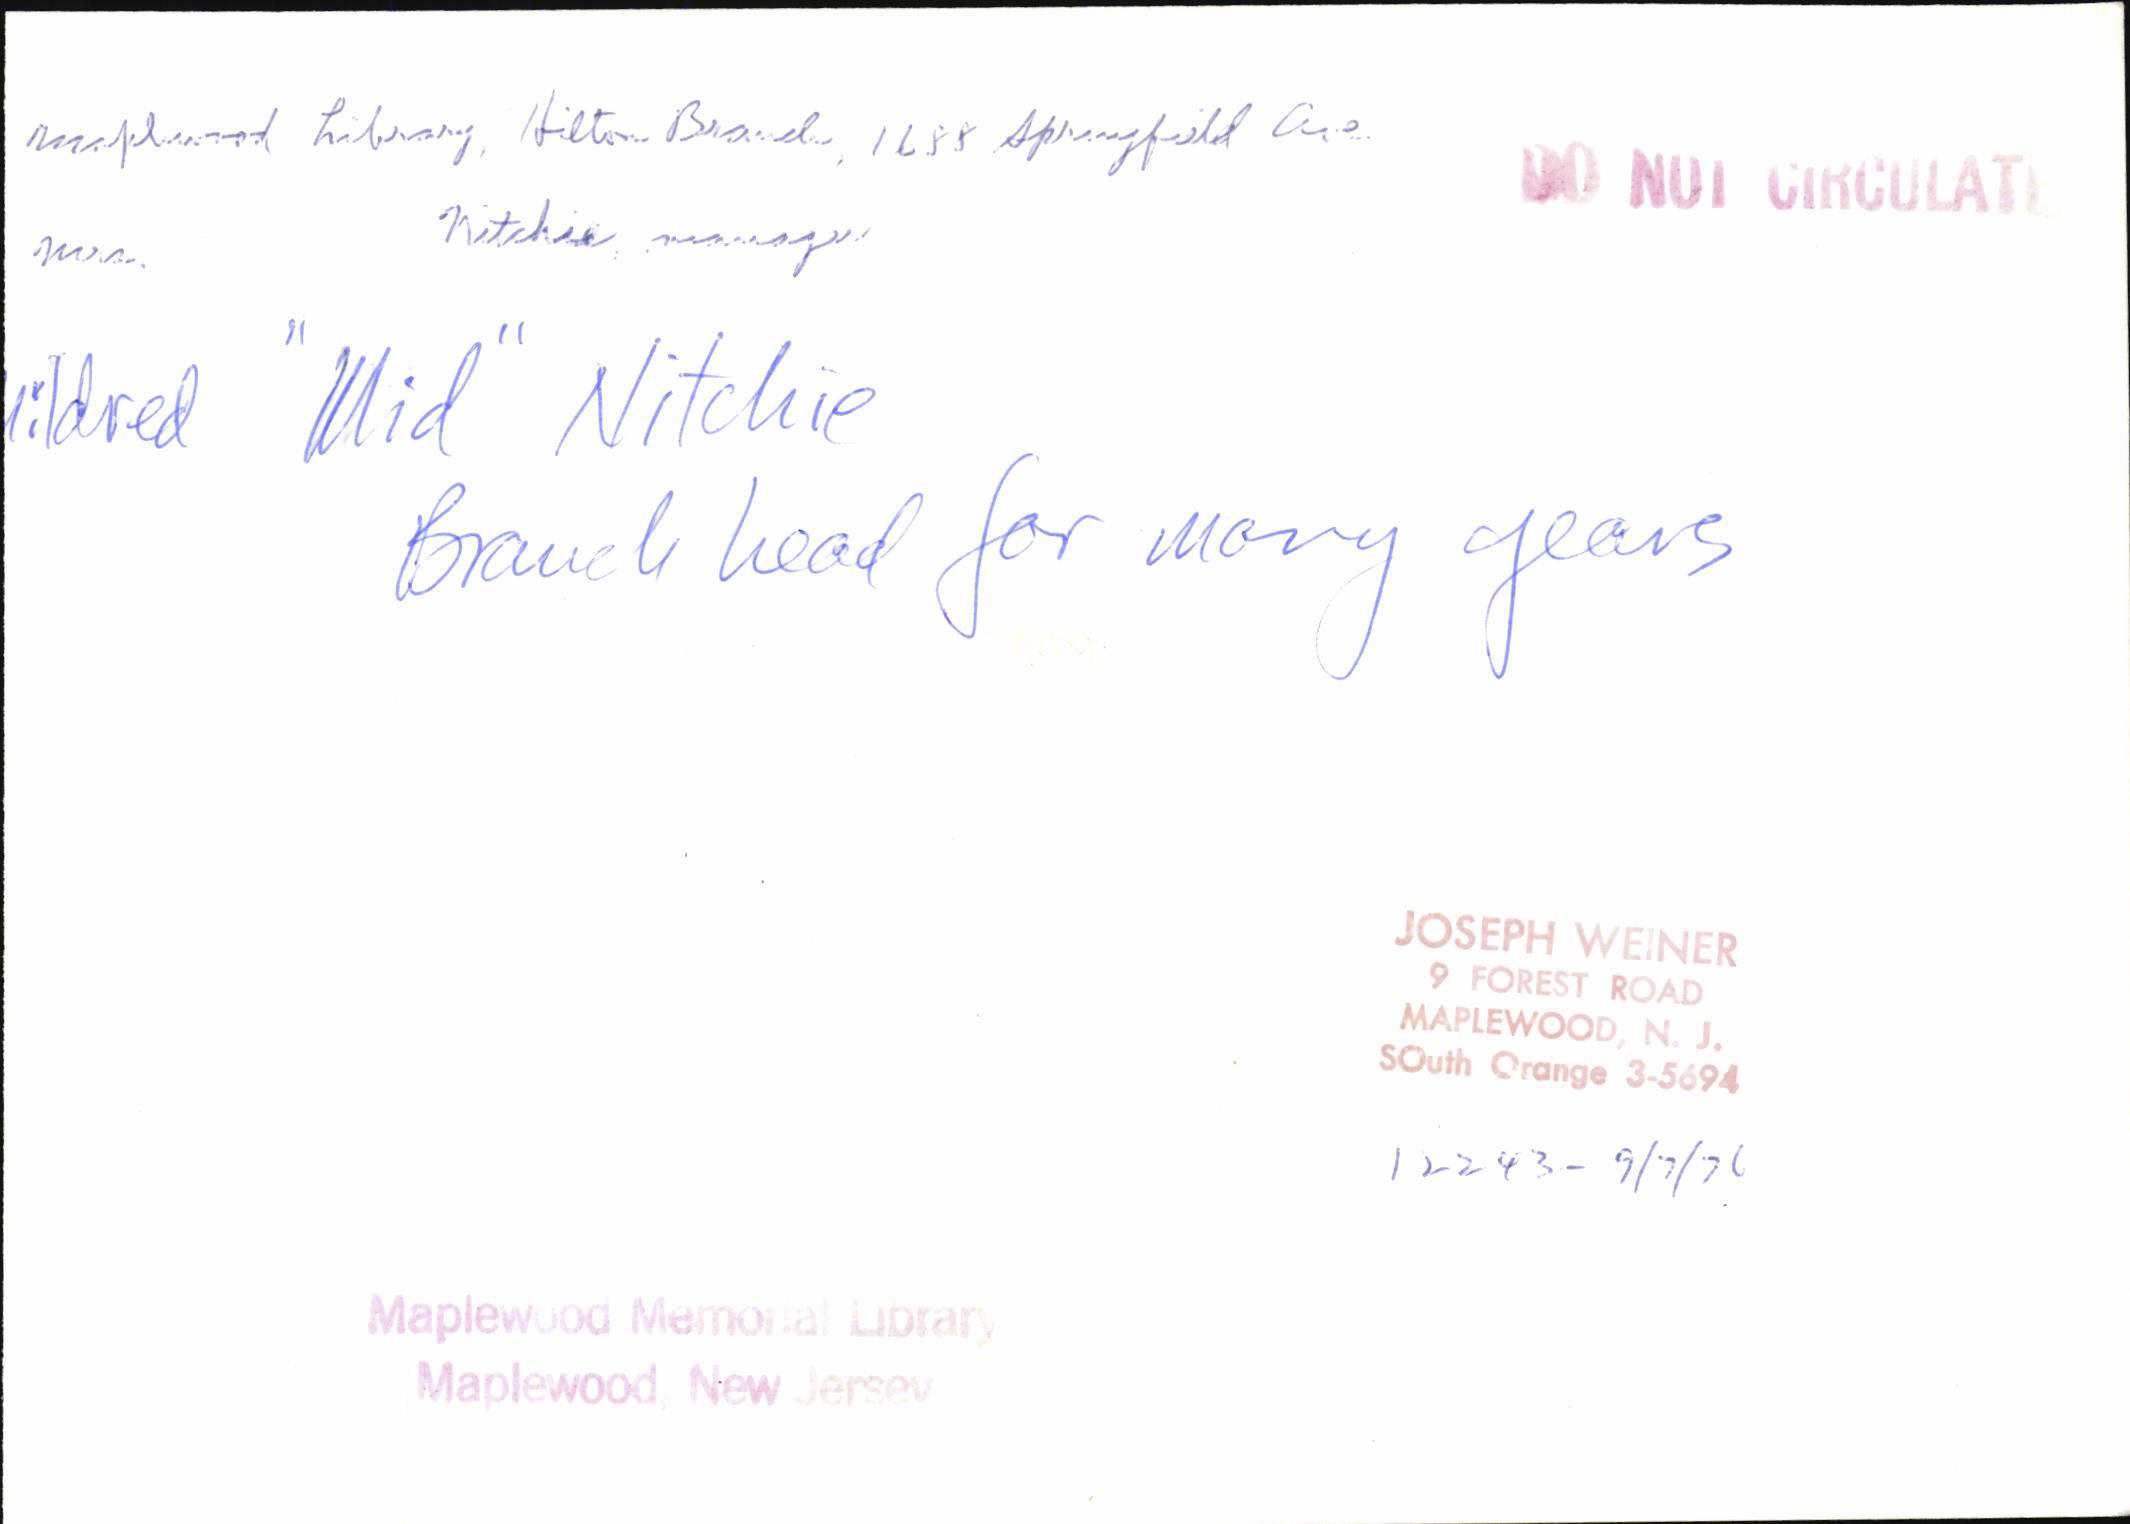 Maplewood Library, Hilton Branch, 1688 Springfield Ave.
DO NOT CIRCULATE
Mrs. Nitchie, manager
Mildred "Mid" Nitchie
Branch head for many years
JOSEPH WEINER
9 FOREST ROAD
MAPLEWOOD, N. J.
SOuth Orange 3-5694
12243- 9/7/76
Maplewood Memorial Library
Maplewood, New Jersey